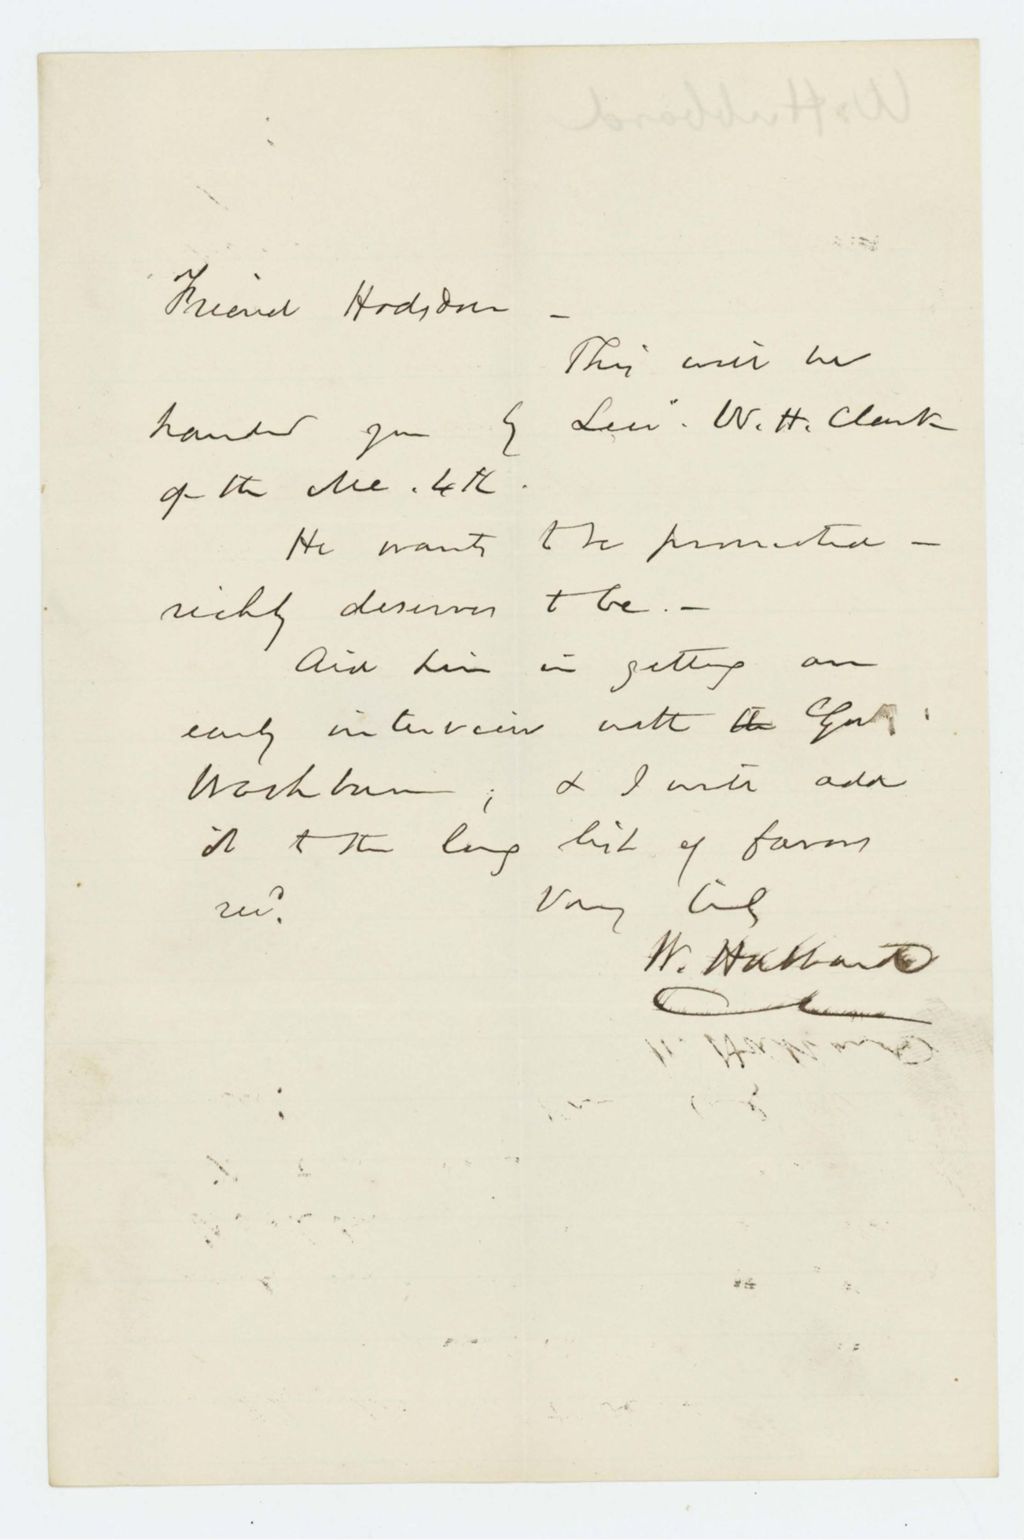 Friend Hodsdon —
This will be
handed you by Lieu. W. H. Clark
of the Me. 4th.
He wants to be promoted —
richly deserves to be. —
Aid him in getting an
early interview with Gov.
Washburn, & I will add
it to the long list of favors
recd. Very truly
W. Hubbard